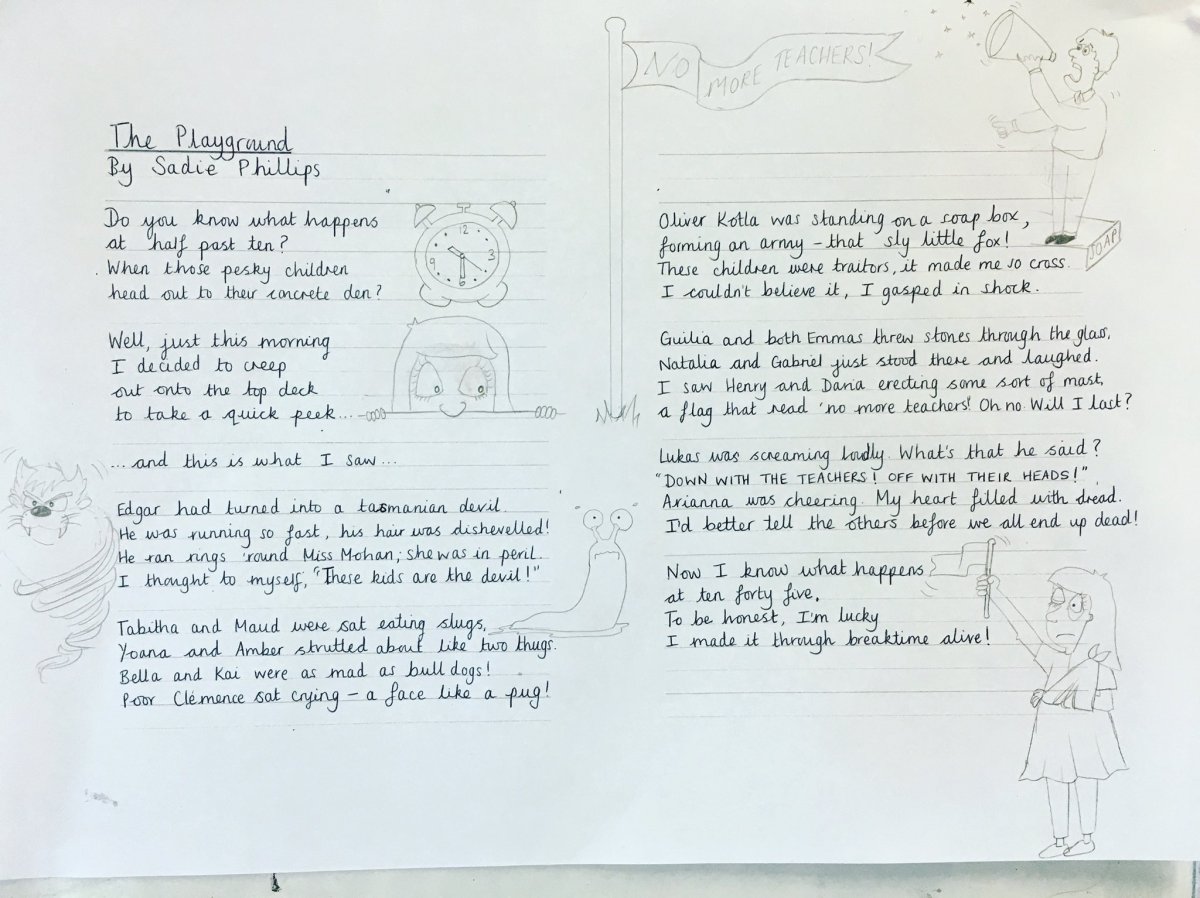 The Playground
By Sadie Phillips
Do you know what happens
at half past ten?
When those pesky children
head out to their concrete den?
Well, just this morning
I decided to creep
out onto the top deck
to take a quick peek...
...and this is what I saw...
Edgar had turned into a tasmanian devil.
He was running so fast, his hair was dishevelled!
He ran rings 'round Miss Mohan; she was in peril.
I thought to myself, "These kids are the devil!"
Tabitha and Maud were sat eating slugs,
Yoana and Amber strutted about like two thugs.
Bella and Kai were as mad as bull dogs!
Poor Clémence sat crying - a face like a pug!
12
3
9
NO MORE TEACHERS!
SOAP
Oliver Kotla was standing on a soap box,
forming an army - that sly little fox!
These children were traitors, it made me so cross.
I couldn't believe it, I gasped in shock.
Guilia and both Emmas threw stones through the glass,
Natalia and Gabriel just stood there and laughed.
I saw Henry and Daria erecting some sort of mast,
a flag that read 'no more teachers!' Oh no. Will I last?
Lukas was screaming loudly. What's that he said?
"DOWN WITH THE TEACHERS! OFF WITH THEIR HEADS!"
Arianna was cheering. My heart filled with dread.
I'd better tell the others before we all end up dead!
Now I know what happens
at ten forty five,
To be honest, I'm lucky
I made it through breaktime alive!